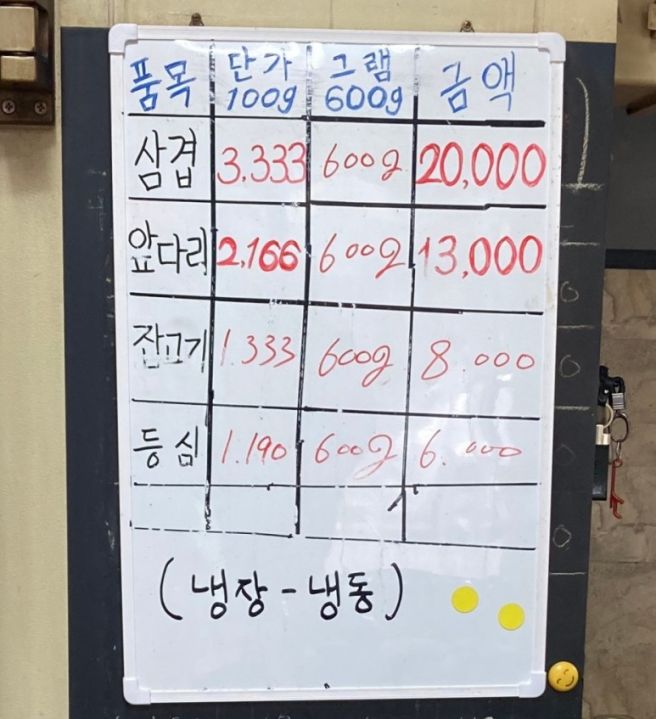 품목 단가 100g 그램 600g 금액
삼겹 3.333 600g 20,000
앞다리 2,166 600g 13,000
잡고기 1.333 600g 8.000
등심 1.190 600g 6.000
(냉장-냉동)